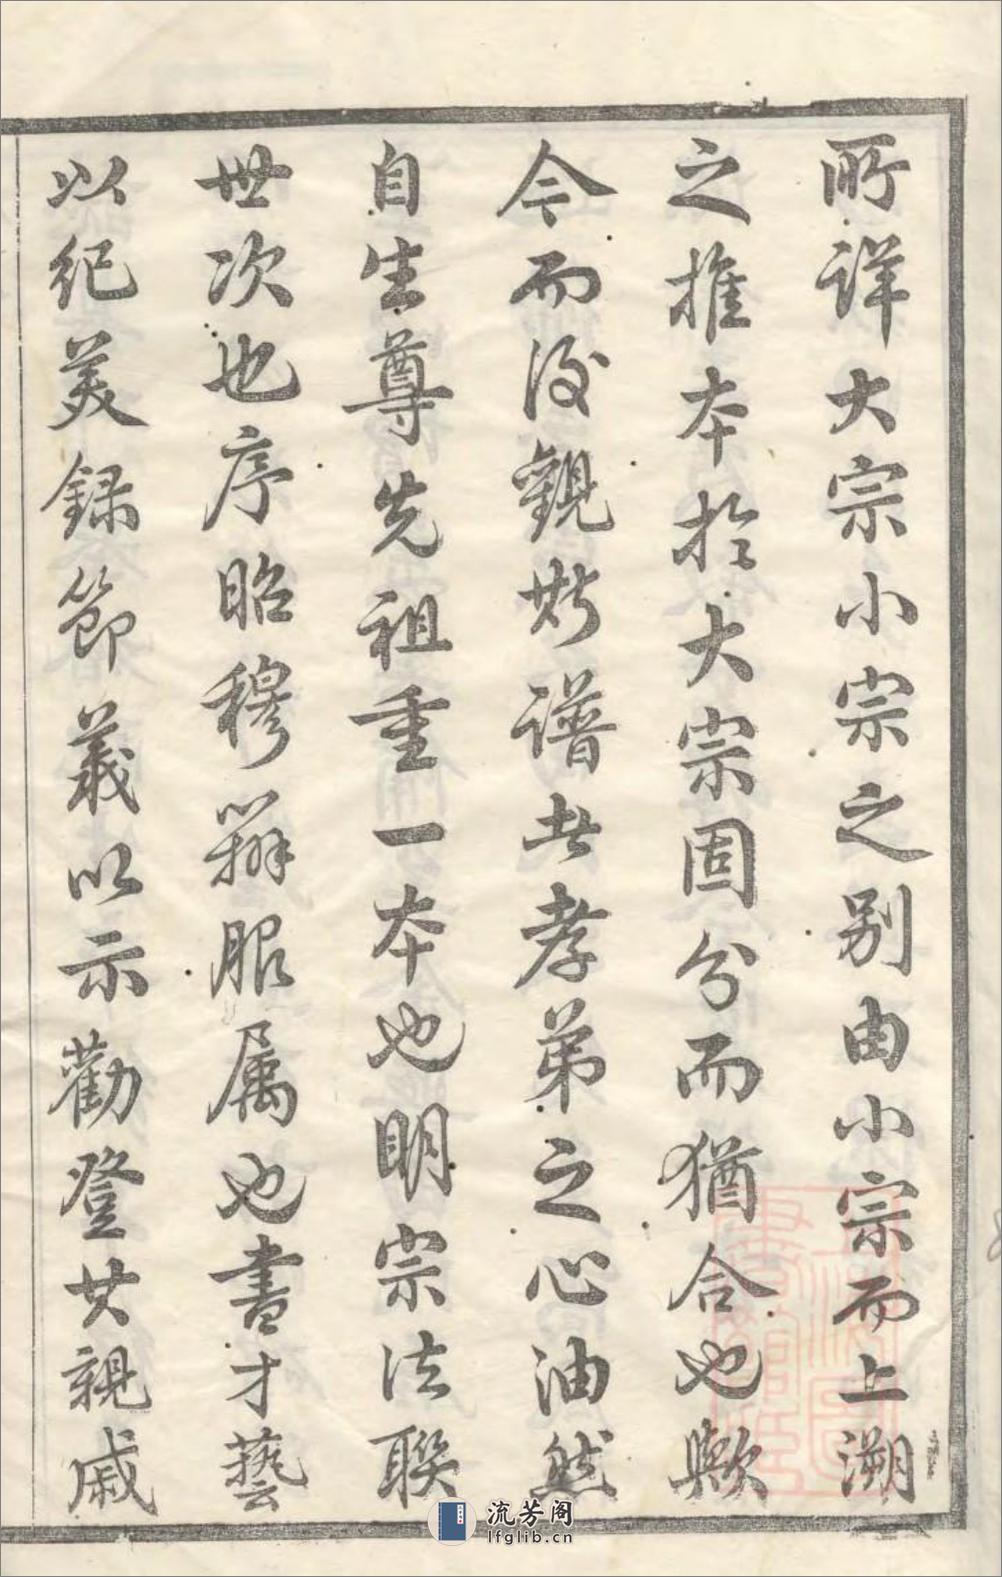 所詳大宗小宗之别由小宗而上溯
之推本扵大宗固分而猶合也歟
今而後觀斯譜者孝弟之心油然
自生尊先祖重一本也明宗法聯
世次也序昭穆辨服属也書才藝
以纪美録節義以示勸登其親戚
流芳阁
lfglib.cn